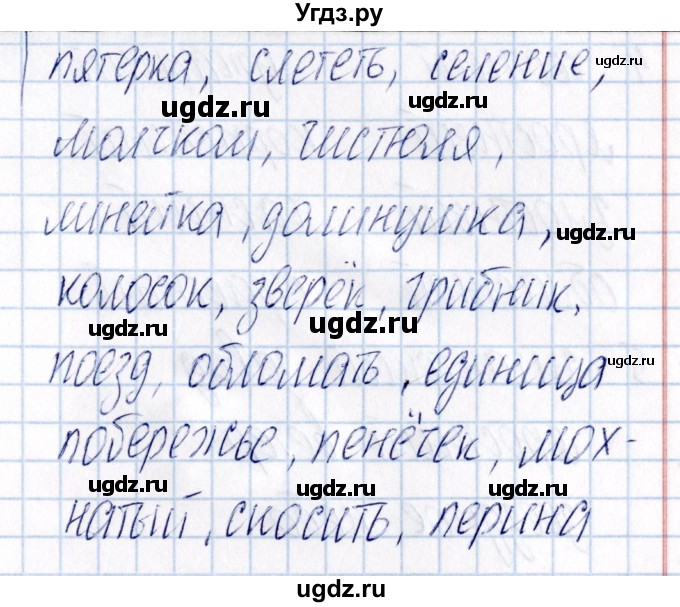 Угдз.ру
пятерка, слететь, селение,
молчком, чистюля,
линейка, долинушка,
колосок, зверёк, грибник,
поезд, обломать, единица
побережье, пенёчек, мох-
натый, скосить, перина
ugdz.ru
ugdz.ru
ugdz.ru
ugdz.ru
ugdz.ru
ugdz.ru
ugdz.ru
ugdz.ru
ugdz.ru
ugdz.ru
ugdz.ru
ugdz.ru